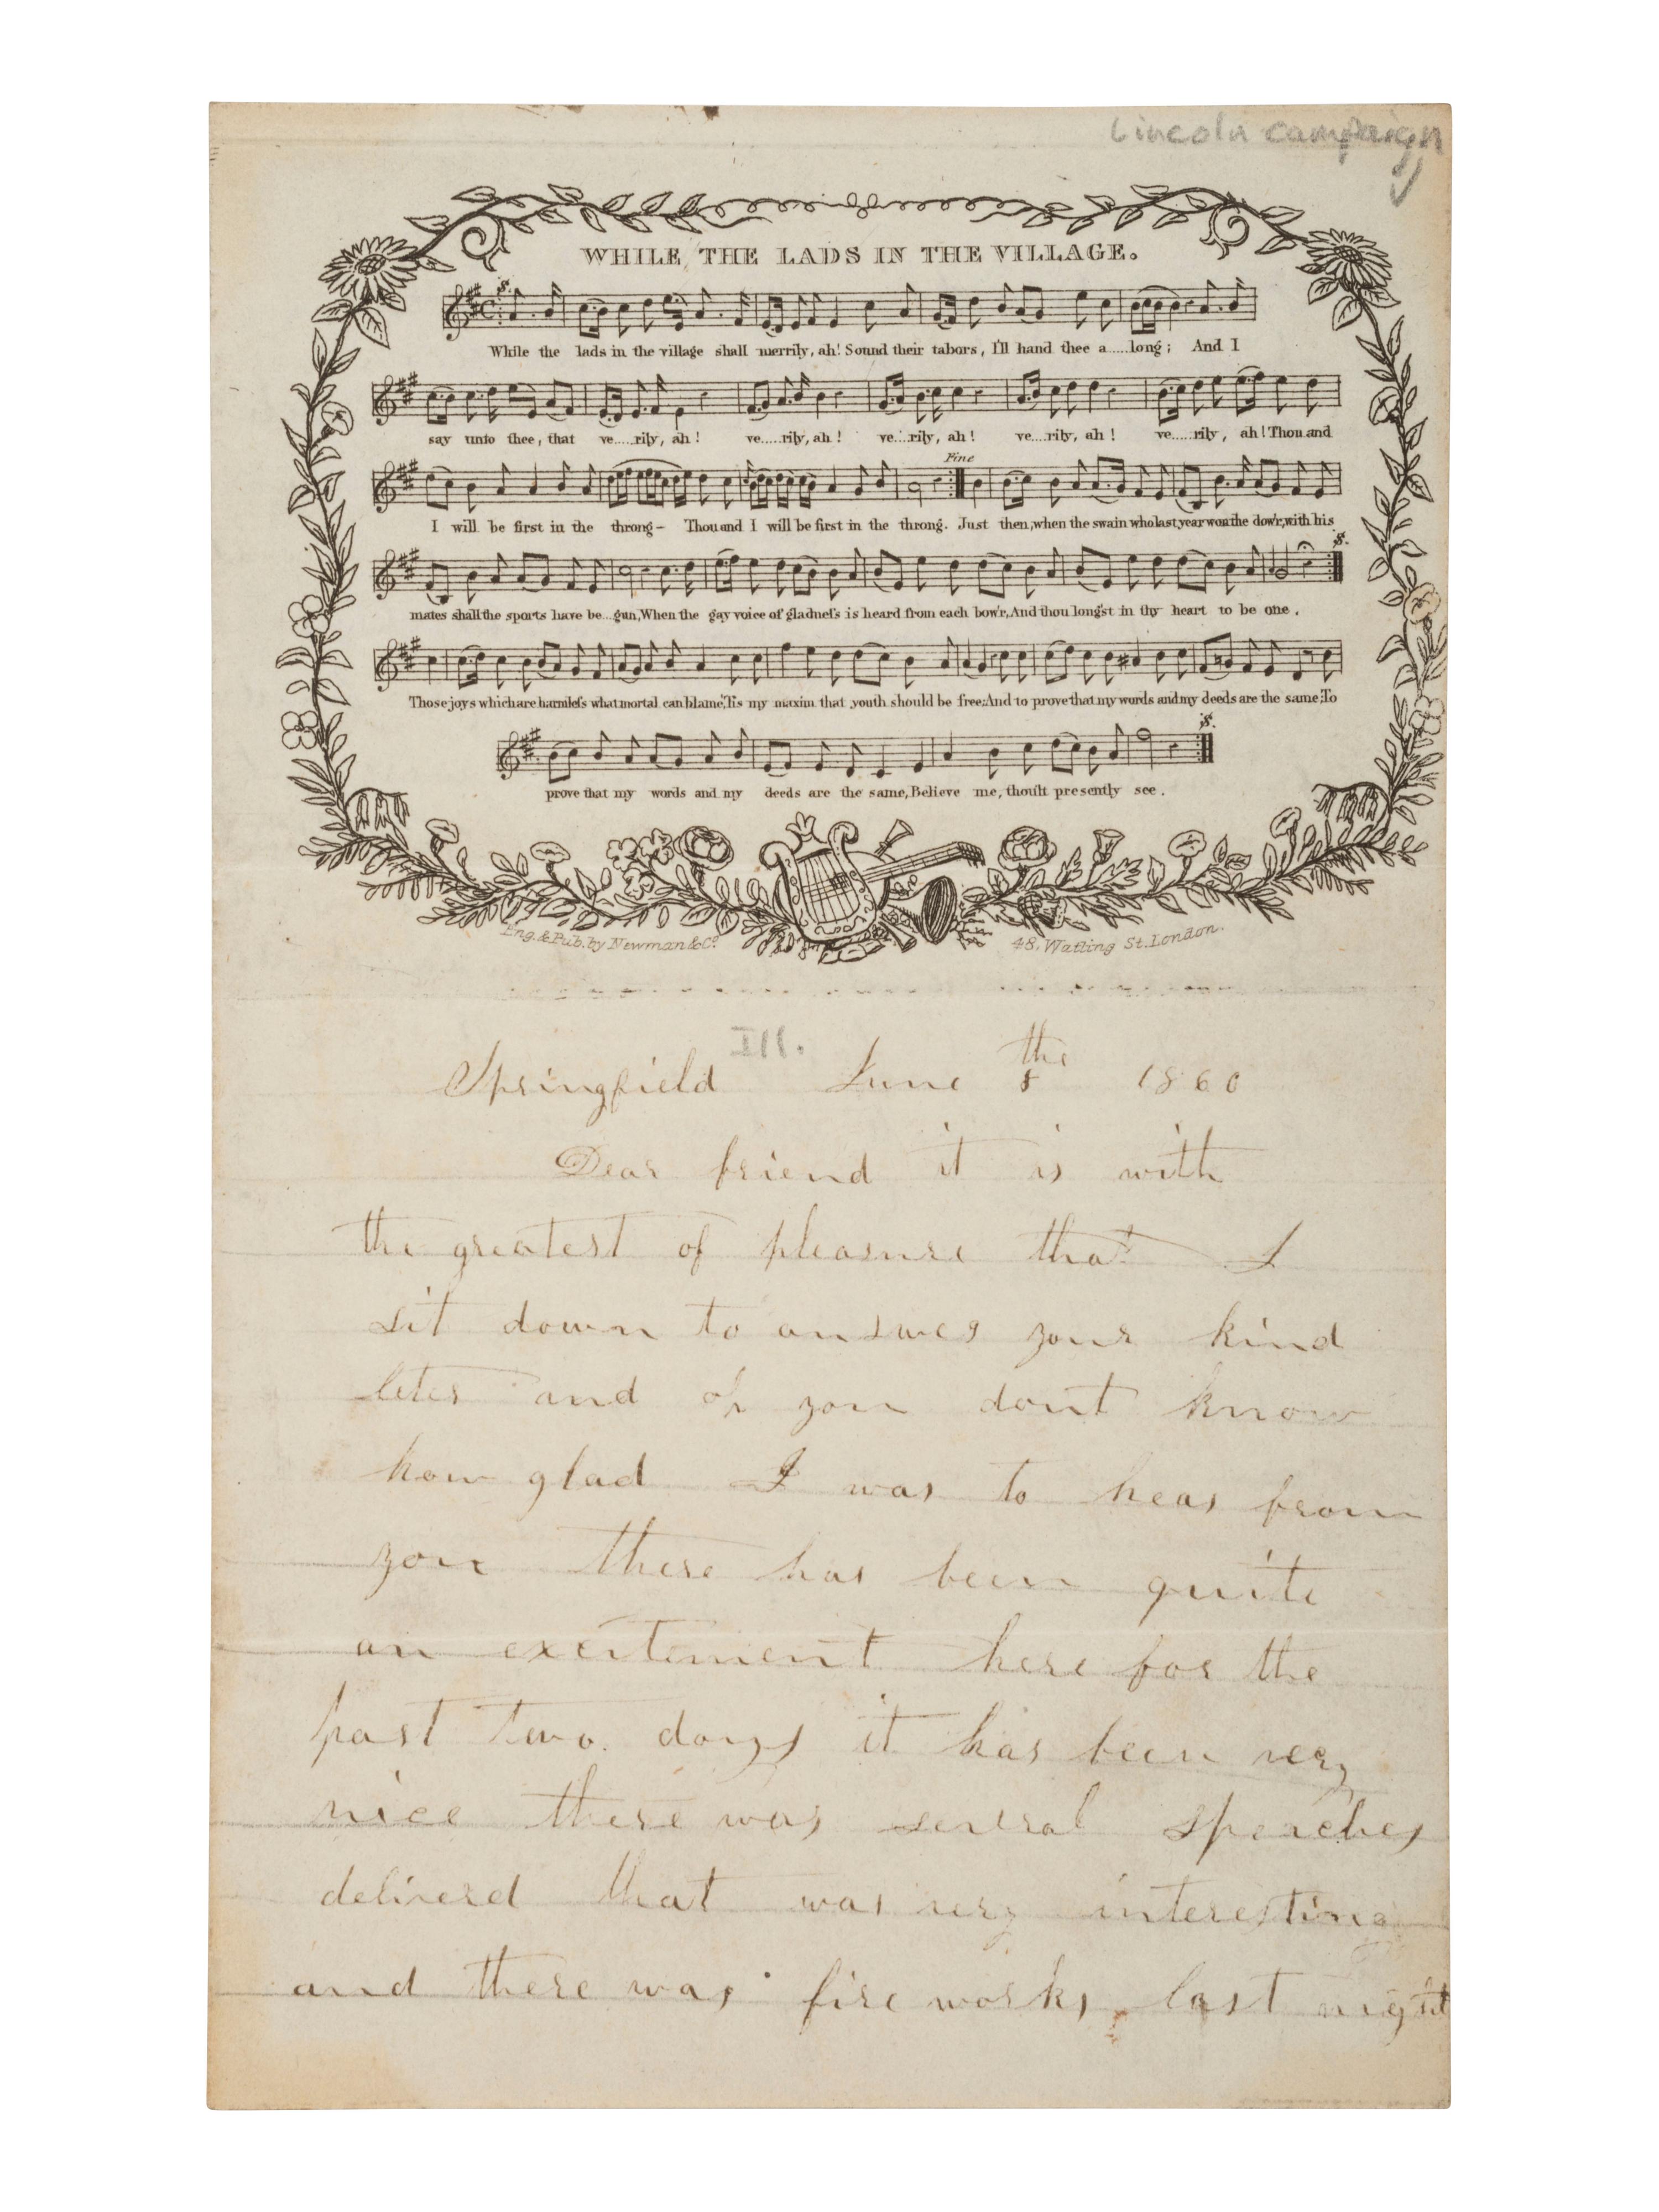 Lincoln campaign
WHILE THE LADS IN THE VILLAGE.
While the lads in the village shall merrily, ah! Sound their tabors, I'll hand thee a.....long; And I
say unto thee, that ve.....rily, ah! ve.....rily, ah! ve.....rily, ah! ve.....rily, ah! ve.....rily, ah! Thou and
Fine
I will be first in the throng– Thou and I will be first in the throng. Just then, when the swain who last year won the dow'r, with his
mates shall the sports have be...gun, When the gay voice of gladneſs is heard from each bow'r, And thou long'st in thy heart to be one.
Those joys which are harmleſs what mortal can blame, 'Tis my maxim that youth should be free; And to prove that my words and my deeds are the same; To
prove that my words and my deeds are the same, Believe me, thou'lt presently see.
Eng. & Pub. by Newman & Co. 48, Watling St. London.
Ill.
Springfield June 8 the 1860
Dear friend it is with
the greatest of pleasure that I
sit down to answer your kind
leter and oh you dont know
how glad I was to hear from
you there has been quite
an exeitement here for the
past two days it has been very
nice there was several speaches
deliverd that was very interesting
and there was fire works last night